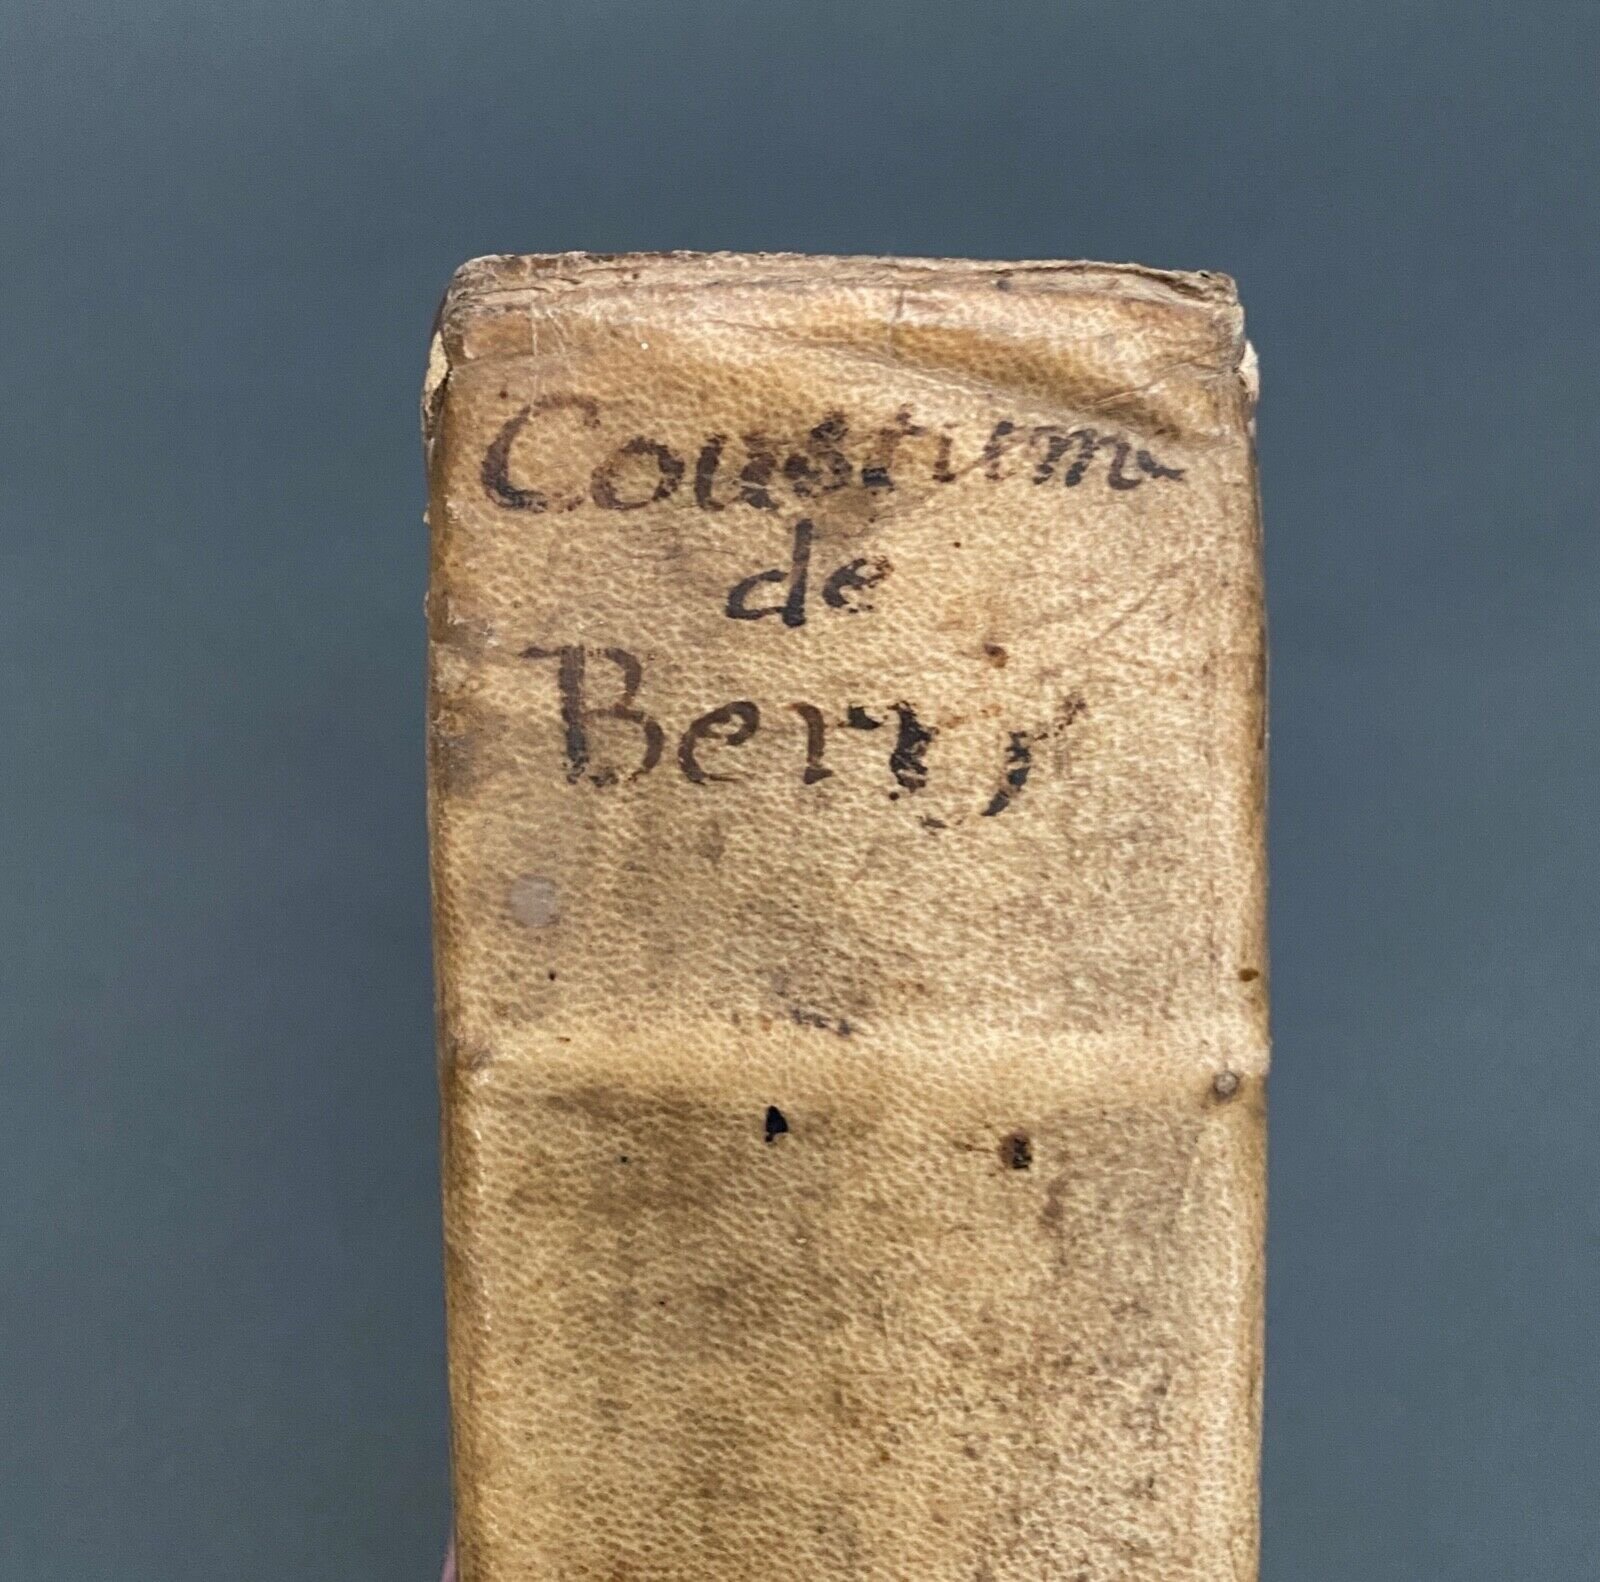 Coustum
de
Berry